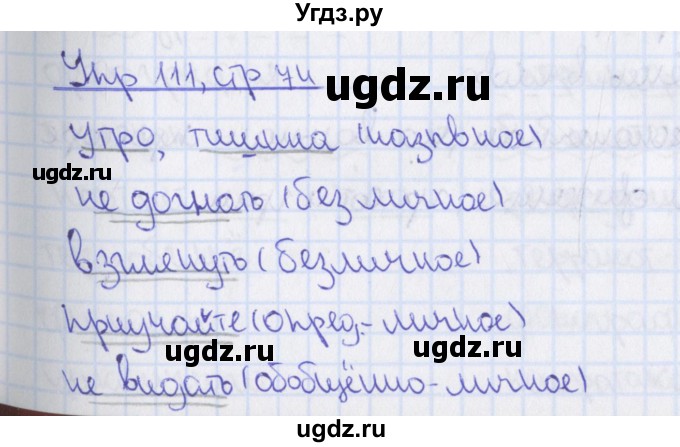 Угдз.ру
Упр 111, стр 74
ugdz.ru
утро, тишина (назывное)
ugdz.ru
не догнать (безличное)
взглянуть (безличное)
приучайте (опред.-личное)
ugdz.ru
ugdz.ru
не видать (обобщённо-личное)
ugdz.ru